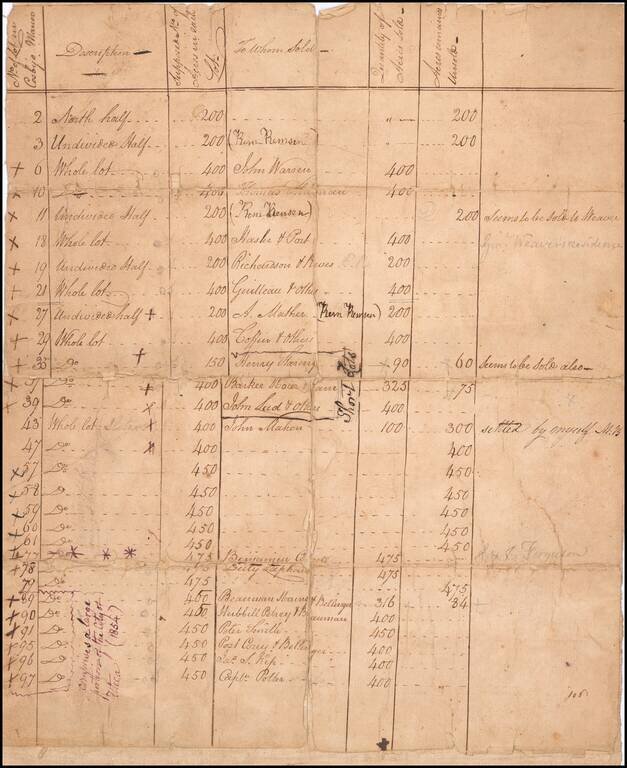 No of lots in Cosby's Manor
Description
Supposed No of Acres in each Lot
To Whom Sold
Quantity of Acres Sold
Acres remains Unsold
2 North half 200 " 200
3 Undivided Half 200 (Rem Remsen) 200
+ 6 Whole lot 400 John Warren 400
10 Do 400 Thomas 400
x 11 Undivided Half 200 (Rem Remsen) 200 Seems to be sold to Weaver
x 18 Whole lot 400 Hasler & Post 400 Weavers residence
+ 19 Undivided Half 200 Richardson & 200
+ 21 Whole lot 400 & others 400
x 27 Undivided half + 200 A. Mather (Rem Remsen) 200
+ 29 Whole lot 400 & others 400
+ 35 Do + 150 Henry 90 60 Seems to be sold also
Do + 400 Barker 325 75
39 Do x 400 John & others 400
Short Lots
43 Whole lot x 400 John Mahon 100 300 settled by myself
47 Do x 400 400
x 57 Do 450 450
x 58 Do 450 450
+ 59 Do 450 450
+ 60 Do 450 450
+ 61 Do 450 450
77 * * * 475 Benjamin 475
+ 78 475 475
79 Do 475 475
89 Do 400 Bauman & Bellinger 316 84
+ 90 Do 400 Hubbill & Bauman 400
+ 91 Do 450 Peter Smith 450
+ 95 Do 450 Post & Bellinger 400
+ 96 Do 450 Jac. S. Kip 400
+ 97 Do 450 Capt. Potter 400
Comprises a large portion of the City of Utica (1854)